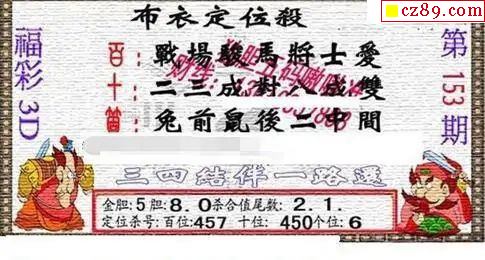 cz89.com
布衣定位殺
福彩3D
第153期
百：戰場駿馬將士愛
十：二三成對八成雙
箇：兔前鼠後二中間
三四結伴一路選
金胆:5 胆:8.0杀合值尾数:2.1.
定位杀号:百位:457 十位:450个位:6